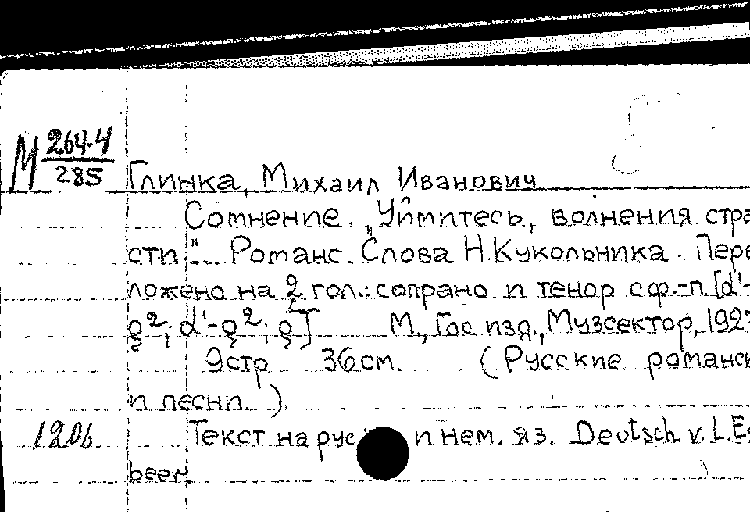 М 264-4
285
Глинка, Михаил Иванович
Сомнение. "Уймитесь, волнения стра
сти". Романс. Слова Н. Кукольника. Пере
ложено на 2 гол.: сопрано и тенор с ф.-п. [d'-
g²; d'-g²; g] М., Гос. изд., Музсектор, 192
9 стр. 36 см. (Русские романс
и песни.)
1206 Текст на рус и нем. яз. Deutsch v. L. Es
beer